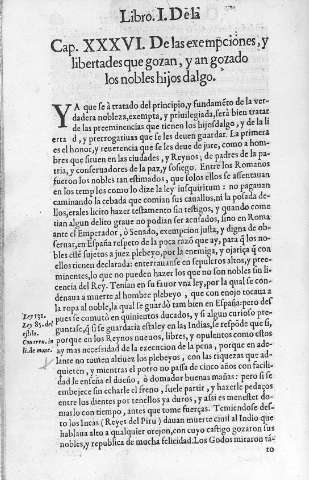 Libro. I. De la
Cap. XXXVI. De las exempciones, y
libertades que gozan, y an gozado
los nobles hijos dalgo.
YA que se à tratado del principio, y fundamẽto de la ver-
dadera nobleza, exempta, y priuilegiada, serà bien tratar
de las preeminencias que tienen los hijosdalgo, y de la li
erta d, y prerrogatiuas que se les deuen guardar. La primera
es el honor, y reuerencia que se les deue de jure, como a hom-
bres que siruen en las ciudades, y Reynos, de padres de la pa-
tria, y conseruadores de la paz, y sosiego. Entre los Romanos
fueron los nobles tan estimados, que solos ellos se assentauan
en los templos como lo dize la ley iusquiritum: no pagauan
caminando la cebada que comian sus cauallos, ni la posada de-
llos, erales licito hazer testamento sin testigos, y quando come
tian algun delito graue no podian ser acusados, sino en Roma
ante el Emperador, ò Senado, exempcion justa, y digna de ob-
seruar, en España respeto de la poca razõ que ay, para q̃ los no-
bles estẽ sujetos a juez plebeyo, por la enemiga, y ojariça q̃ con
ellos tienen declarada: enterrauanse en sepulcros altos, y pree-
minentes, lo que no pueden hazer los que no son nobles sin li-
cencia del Rey. Tenian en su fauor vna ley, por la qual se con-
denaua a muerte al hombre plebeyo, que con enojo tocaua a
la ropa al noble, la qual se guardò tambien en España: pero des
pues se comutò en quinientos ducados, y si algun curioso pre-
guntase, q̃ si se guardaria estaley en las Indias, se respõde que si,
porque en los Reynos nueuos, libres, y opulentos como estos
ay mas necesidad de la execucion de la pena, porque en ade-
lante no tomen altiuez los plebeyos, con las riquezas que ad-
quieren, y mientras el potro no passa de cinco años con facili-
dad le enseña el dueño, ò domador buenas mañas: pero si se
embejece sin echarle el freno, suele partir, y hazerle pedaços
entre los dientes por tenellos ya duros, y assi es menester do-
marlo con tiempo, antes que tome fuerças. Temiendose des-
to los Incas (Reyes del Piru) dauan muerte cruel al Indio que
hablaua alto a qualquier orejon, con cuyo castigo gozaron sus
nobles, y republica de mucha felicidad. Los Godos mitaron tã-
to
Ley 131.
Ley 85. del
estilo.